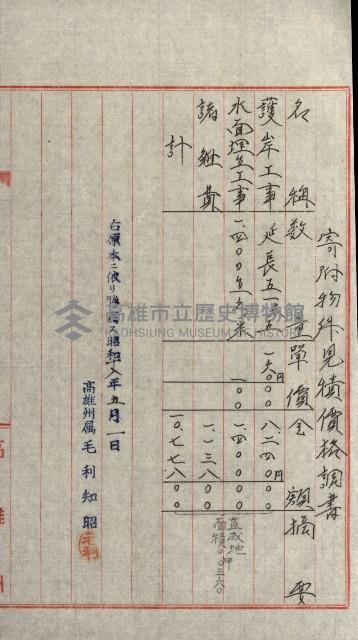 寄附物件見積價格調書
名稱 數量 單價 金額 摘要
護岸工事 延長五一、五 一六〇円 八、二四〇円〇〇
水面埋立工事 一、四〇〇 一〇〇 一、四〇〇〇〇
諸雜費 一、一三八〇〇
計 一〇、七七八〇〇
右原本ニ依リ 昭和 年五月一日
高雄州属 毛利知昭
毛利
高雄市立歷史博物館
KAOHSIUNG MUSEUM OF HISTORY
高雄州